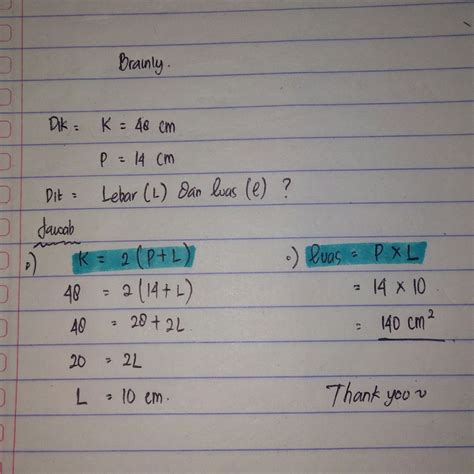 Brainly.
Dik = K = 48 cm
P = 14 cm
Dit = Lebar (L) dan luas (l) ?
Jawab
•) K = 2 (P+L)
48 = 2 (14+L)
48 = 28 + 2L
20 = 2L
L = 10 cm.
•) luas = P × L
= 14 × 10
= 140 cm²
Thank you ~